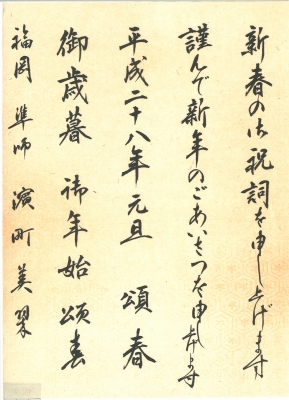 新春の御祝詞を申し上げます
謹んで新年のごあいさつを申し上げます
平成二十八年元旦 頌春
御歳暮 御年始 頌春
福岡 準師 濱町美翠